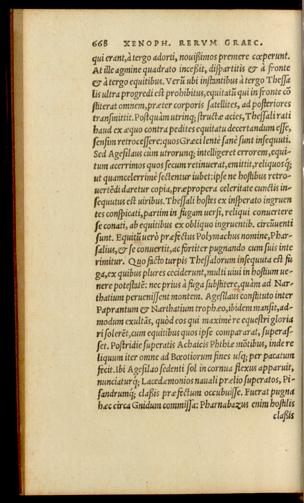 668 XENOPH. RERVM GRAEC.
qui erant, à tergo adorti, nouißimos premere cœperunt.
At ille agmine quadrato inceßit, dispartitis & à fronte
& à tergo equitibus. Verũ ubi instantibus à tergo Thessa
lis ultra progredi est prohibitus, equitatũ qui in fronte cõ
stiterat omnem, præter corporis satellites, ad posteriores
transmittit. Postquàm utrinq; structæ acies, Thessali rati
haud ex æquo contra pedites equitatu decertandum esse,
sensim retrocessere: quos Græci lentè sanè sunt insequuti.
Sed Agesilaus cum utrorunq; intelligeret errorem, equi-
tum acerrimos quos secum retinuerat, emittit, reliquosq́;
ut quamcelerrimè sectentur iubet: ipse ne hostibus retro-
uertẽdi daretur copia, præpropera celeritate cunctis in-
sequutus est uiribus. Thessali hostes ex insperato ingruen
tes conspicati, partim in fugam uersi, reliqui conuertere
se conati, ab equitibus ex obliquo ingruentib. circũuenti
sunt. Equitũ uerò præfectus Polymachus nomine, Phar-
salius, & se conuertit, ac fortiter pugnando cum suis inte
rimitur. Quo facto turpis Thessalorum insequuta est fu
ga, ex quibus plures ceciderunt, multi uiui in hostium ue-
nere potestatẽ: nec prius à fuga substitere, quàm ad Nar-
thatium peruenissent montem. Agesilaus constituto inter
Paprantum & Narthatium trophæo, ibidem mansit, ad-
modum exultãs, quòd eos qui maximè re equestri gloria
ri solerẽt, cum equitibus quos ipse compararat, superas-
set. Postridie superatis Achaicis Phthiæ mõtibus, inde re
liquum iter omne ad Bœotiorum fines usq; per pacatum
fecit. Ibi Agesilao sedenti sol in cornua flexus apparuit,
nunciaturq́; Lacedæmonios nauali prælio superatos, Pi-
sandrumq́; claßis præfectum occubuisse. Fuerat pugna
hæc circa Gnidum commissa: Pharnabazus enim hostilis
claßis